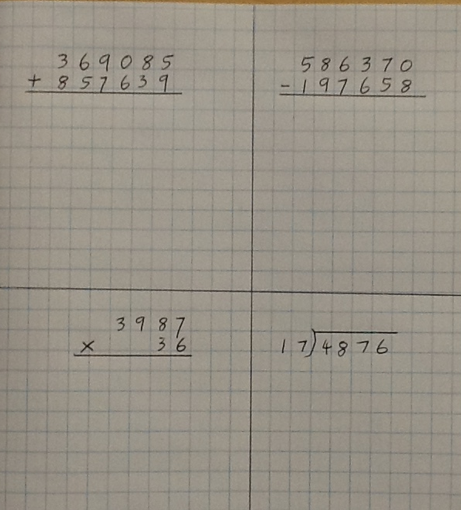 369085
+ 857639
586370
- 197658
3987
× 36
17)4876